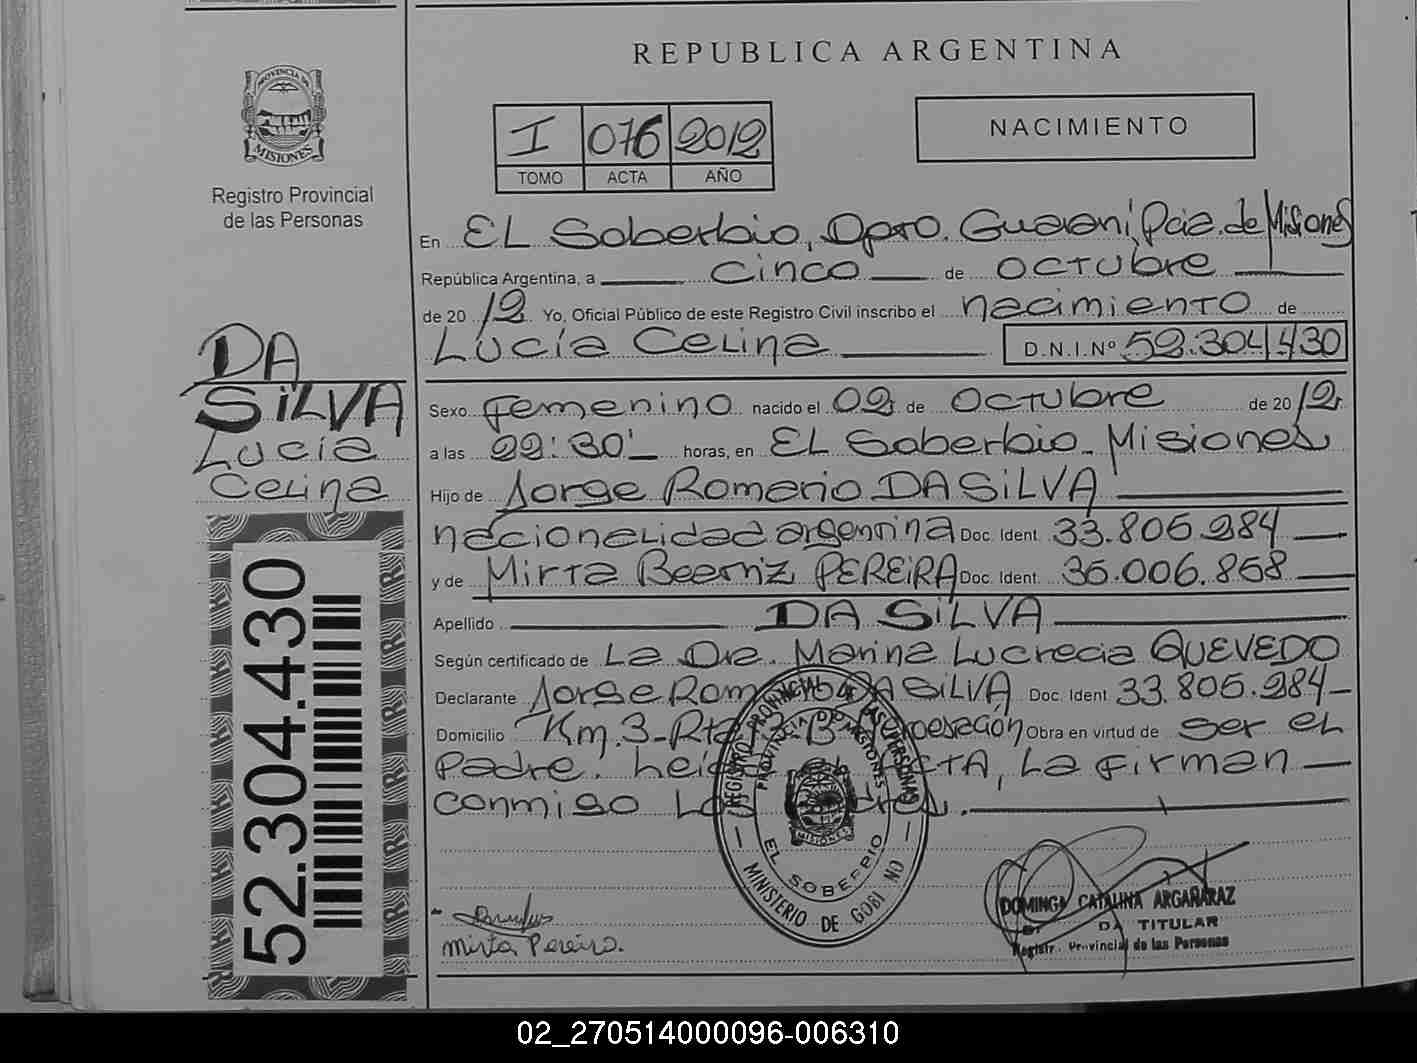 REPUBLICA ARGENTINA
PROVINCIA DE
MISIONES
Registro Provincial
de las Personas
I 076 2012
TOMO ACTA AÑO
NACIMIENTO
En EL Soberbio, Dpto. Guaraní, Pcia. de Misiones
República Argentina, a cinco de octubre
de 20 12 Yo, Oficial Público de este Registro Civil inscribo el nacimiento de
Lucía Celina D.N.I.Nº 52.304.430
DA
SILVA
Lucía
Celina
52.304.430
Sexo Femenino nacido el 02 de octubre de 20 12
a las 22:30' horas, en EL Soberbio - Misiones
Hijo de Jorge Romerio DA SILVA
nacionalidad argentina Doc. Ident. 33.806.284
y de Mirta Beatriz PEREIRA Doc. Ident. 36.006.868
Apellido DA SILVA
Según certificado de La Dra. Marina Lucrecia QUEVEDO
Declarante Jorge Romerio DA SILVA Doc. Ident. 33.806.284
Domicilio Km. 3 - Rta Obra en virtud de ser el
Padre. Leida el ACTA, La firman
conmigo Los
REGISTRO PROVINCIAL DE LAS PERSONAS
PROVINCIA DE MISIONES
MISIONES
EL SOBERBIO
MINISTERIO DE GOBIERNO
Mirta Pereira.
DOMINGA CATALINA ARGAÑARAZ
TITULAR
Registro Provincial de las Personas
02_270514000096-006310